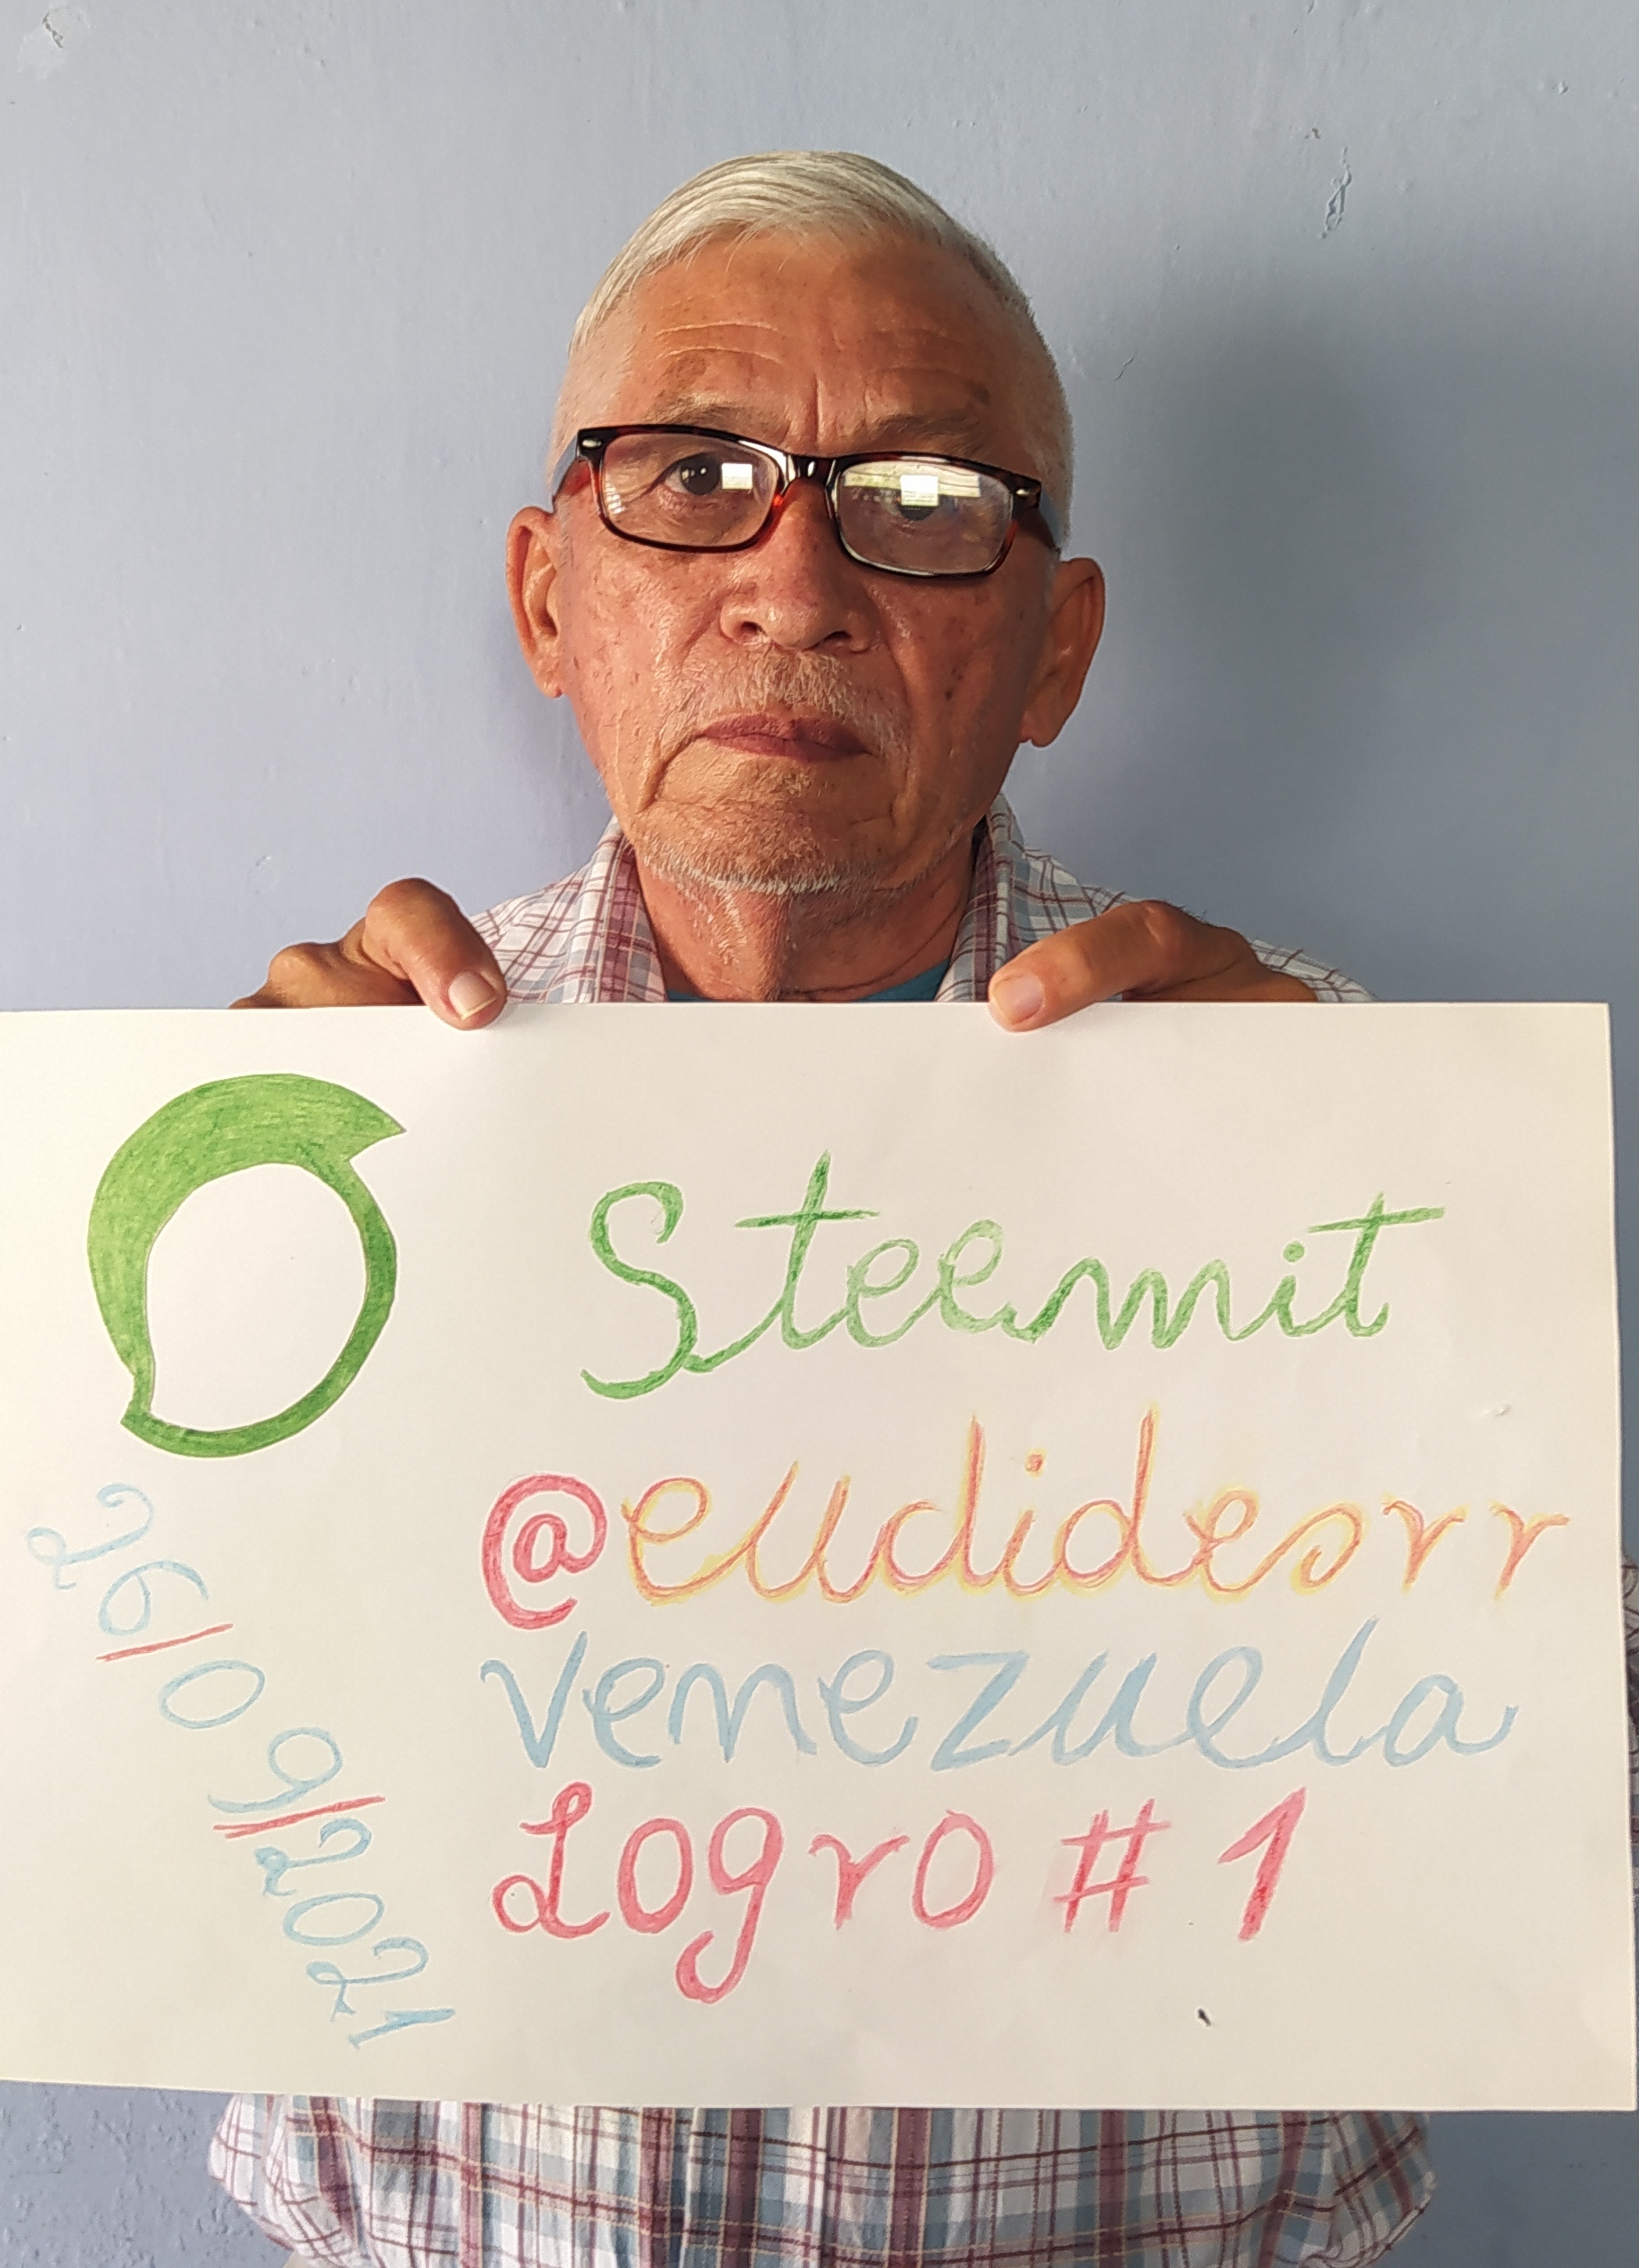 Steemit
@eudidesrr
venezuela
Logro # 1
26/09/2021